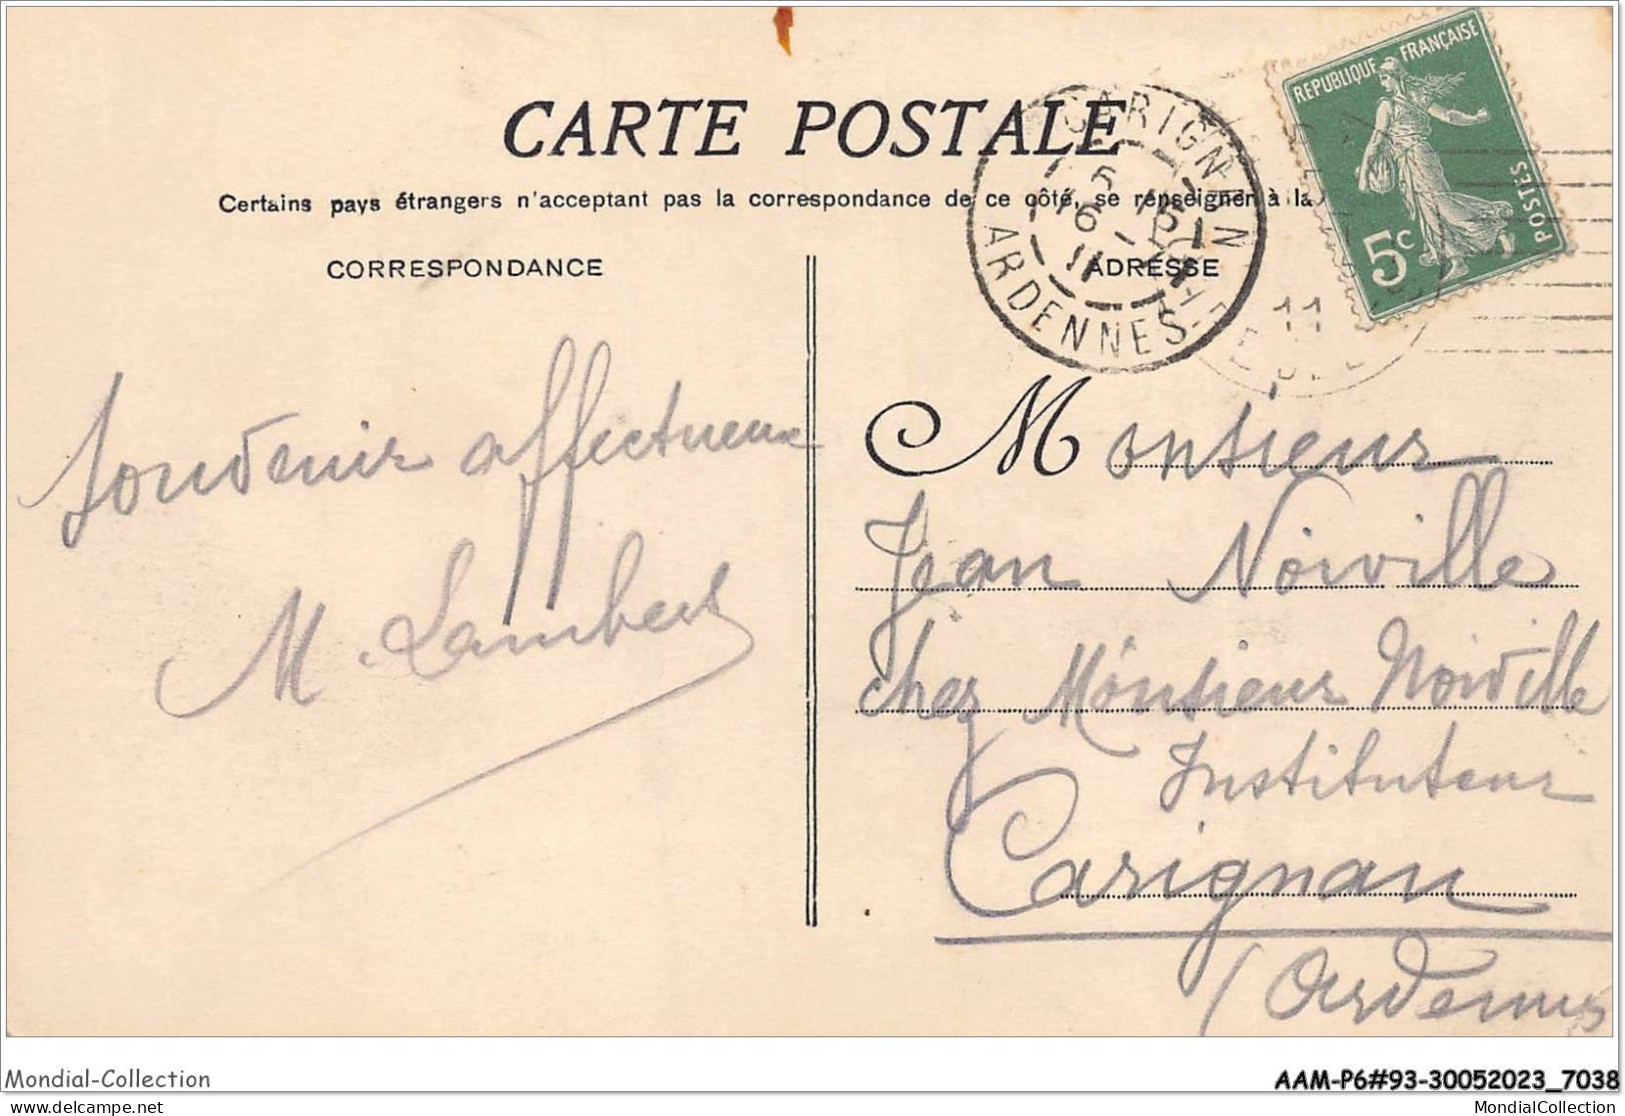 CARTE POSTALE
Certains pays étrangers n'acceptant pas la correspondance de ce côté, se renseigner à la
CORRESPONDANCE
ADRESSE
CARIGNAN
ARDENNES
REPUBLIQUE FRANÇAISE
POSTES
5c
11
Souvenir affectueux
M. Lambert
Monsieur
Jean Noiville
chez Monsieur Noiville
Instituteur
Carignan
(Ardennes
Mondial-Collection
AAM-P6#93-30052023_7038
delcampe.net
MondialCollection